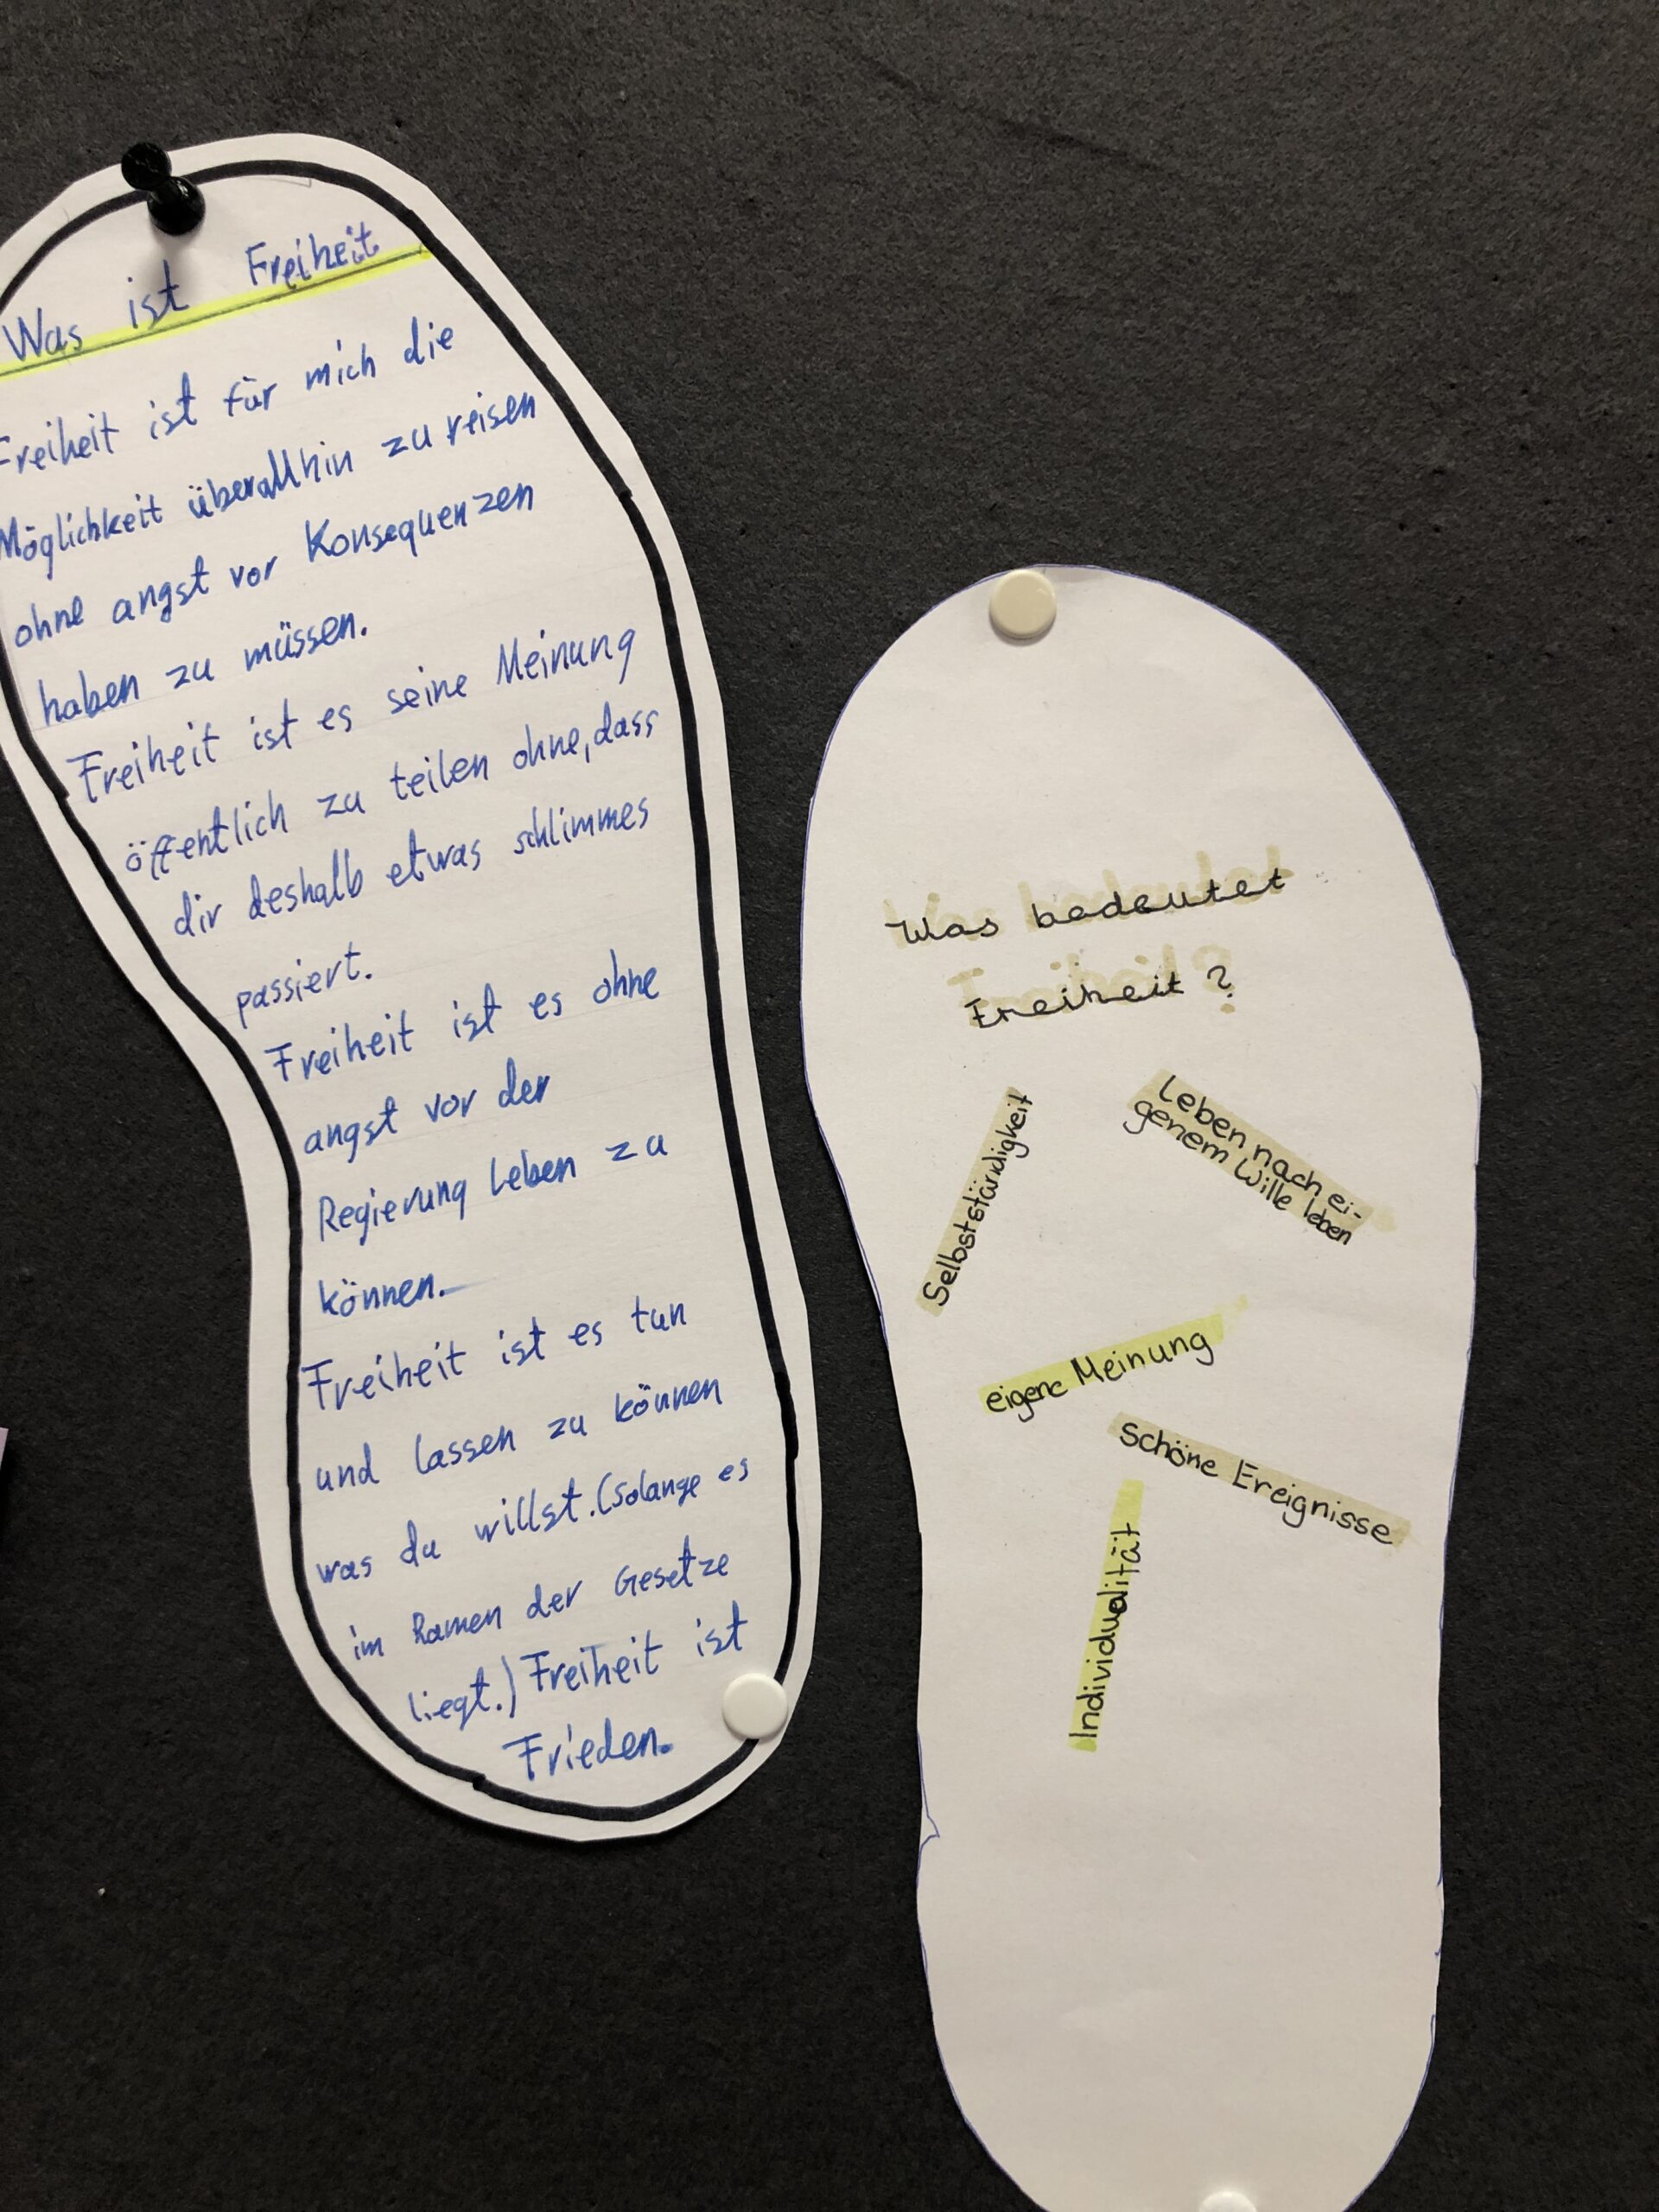 Was ist Freiheit
Freiheit ist für mich die
Möglichkeit überallhin zu reisen
ohne angst vor Konsequenzen
haben zu müssen.
Freiheit ist es seine Meinung
öffentlich zu teilen ohne, dass
dir deshalb etwas schlimmes
passiert.
Freiheit ist es ohne
angst vor der
Regierung leben zu
können.
Freiheit ist es tun
und lassen zu können
was du willst. (solange es
im Ramen der Gesetze
liegt.) Freiheit ist
Frieden.
Was bedeutet
Freiheit?
Selbstständigkeit
Leben nach ei-
genem Wille leben
eigene Meinung
Schöne Ereignisse
Individualität